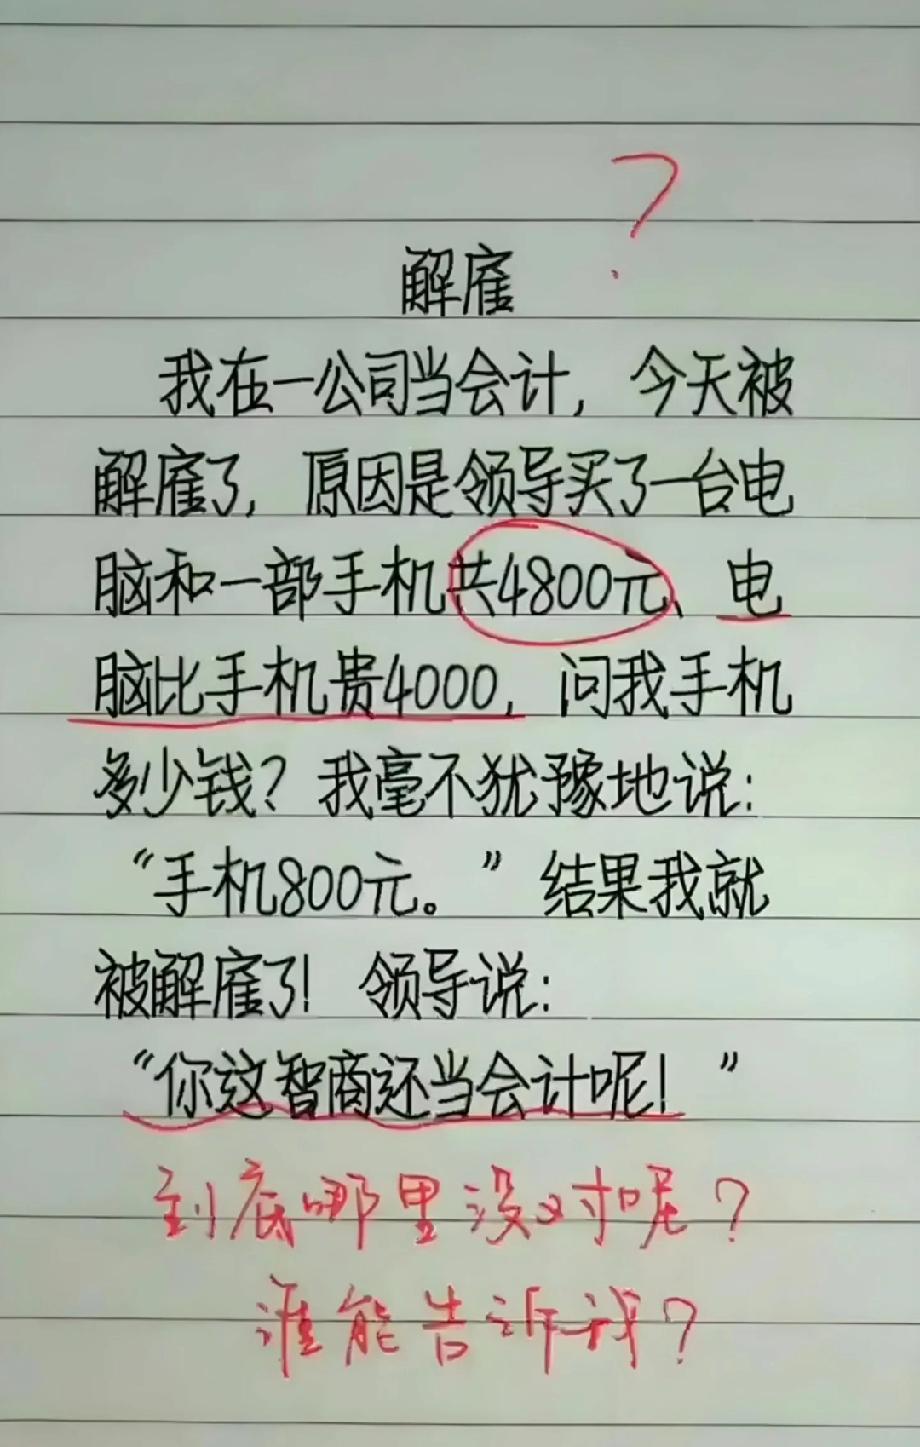 ?
解雇
我在一公司当会计，今天被
解雇了，原因是领导买了一台电
脑和一部手机共4800元、电
脑比手机贵4000，问我手机
多少钱？我毫不犹豫地说：
“手机800元。”结果我就
被解雇了！领导说：
“你这智商还当会计呢！”
到底哪里没对呢？
谁能告诉我？